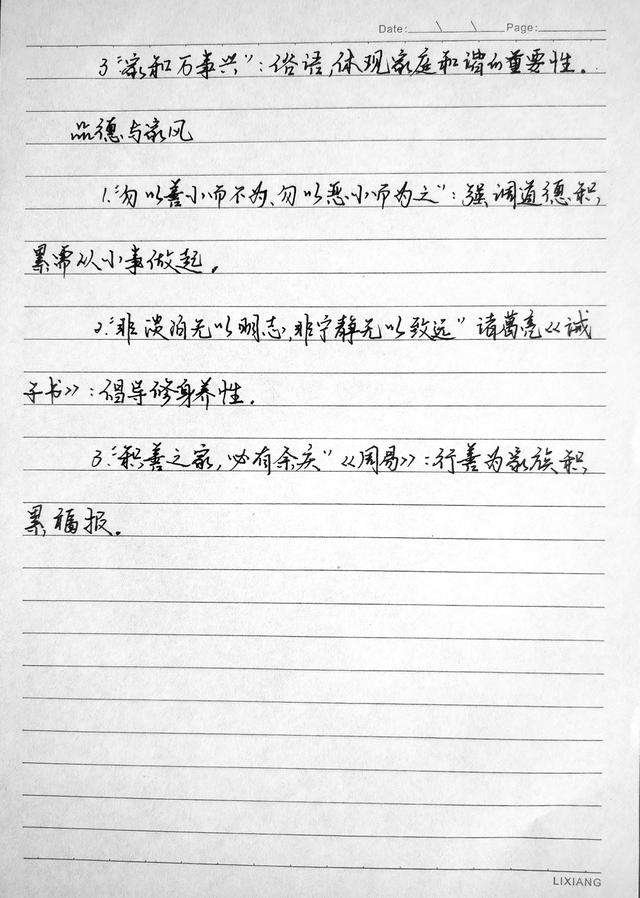 Date: \ \ Page:
3."家和万事兴":俗语,体观家庭和谐的重要性。
品德与家风
1."勿以善小而不为、勿以恶小而为之":强调道德积
累需从小事做起。
2."非淡泊无以明志,非宁静无以致远"诸葛亮《诫
子书》:倡导修身养性。
3."积善之家,必有余庆"《周易》:行善为家族积
累福报。
LIXIANG